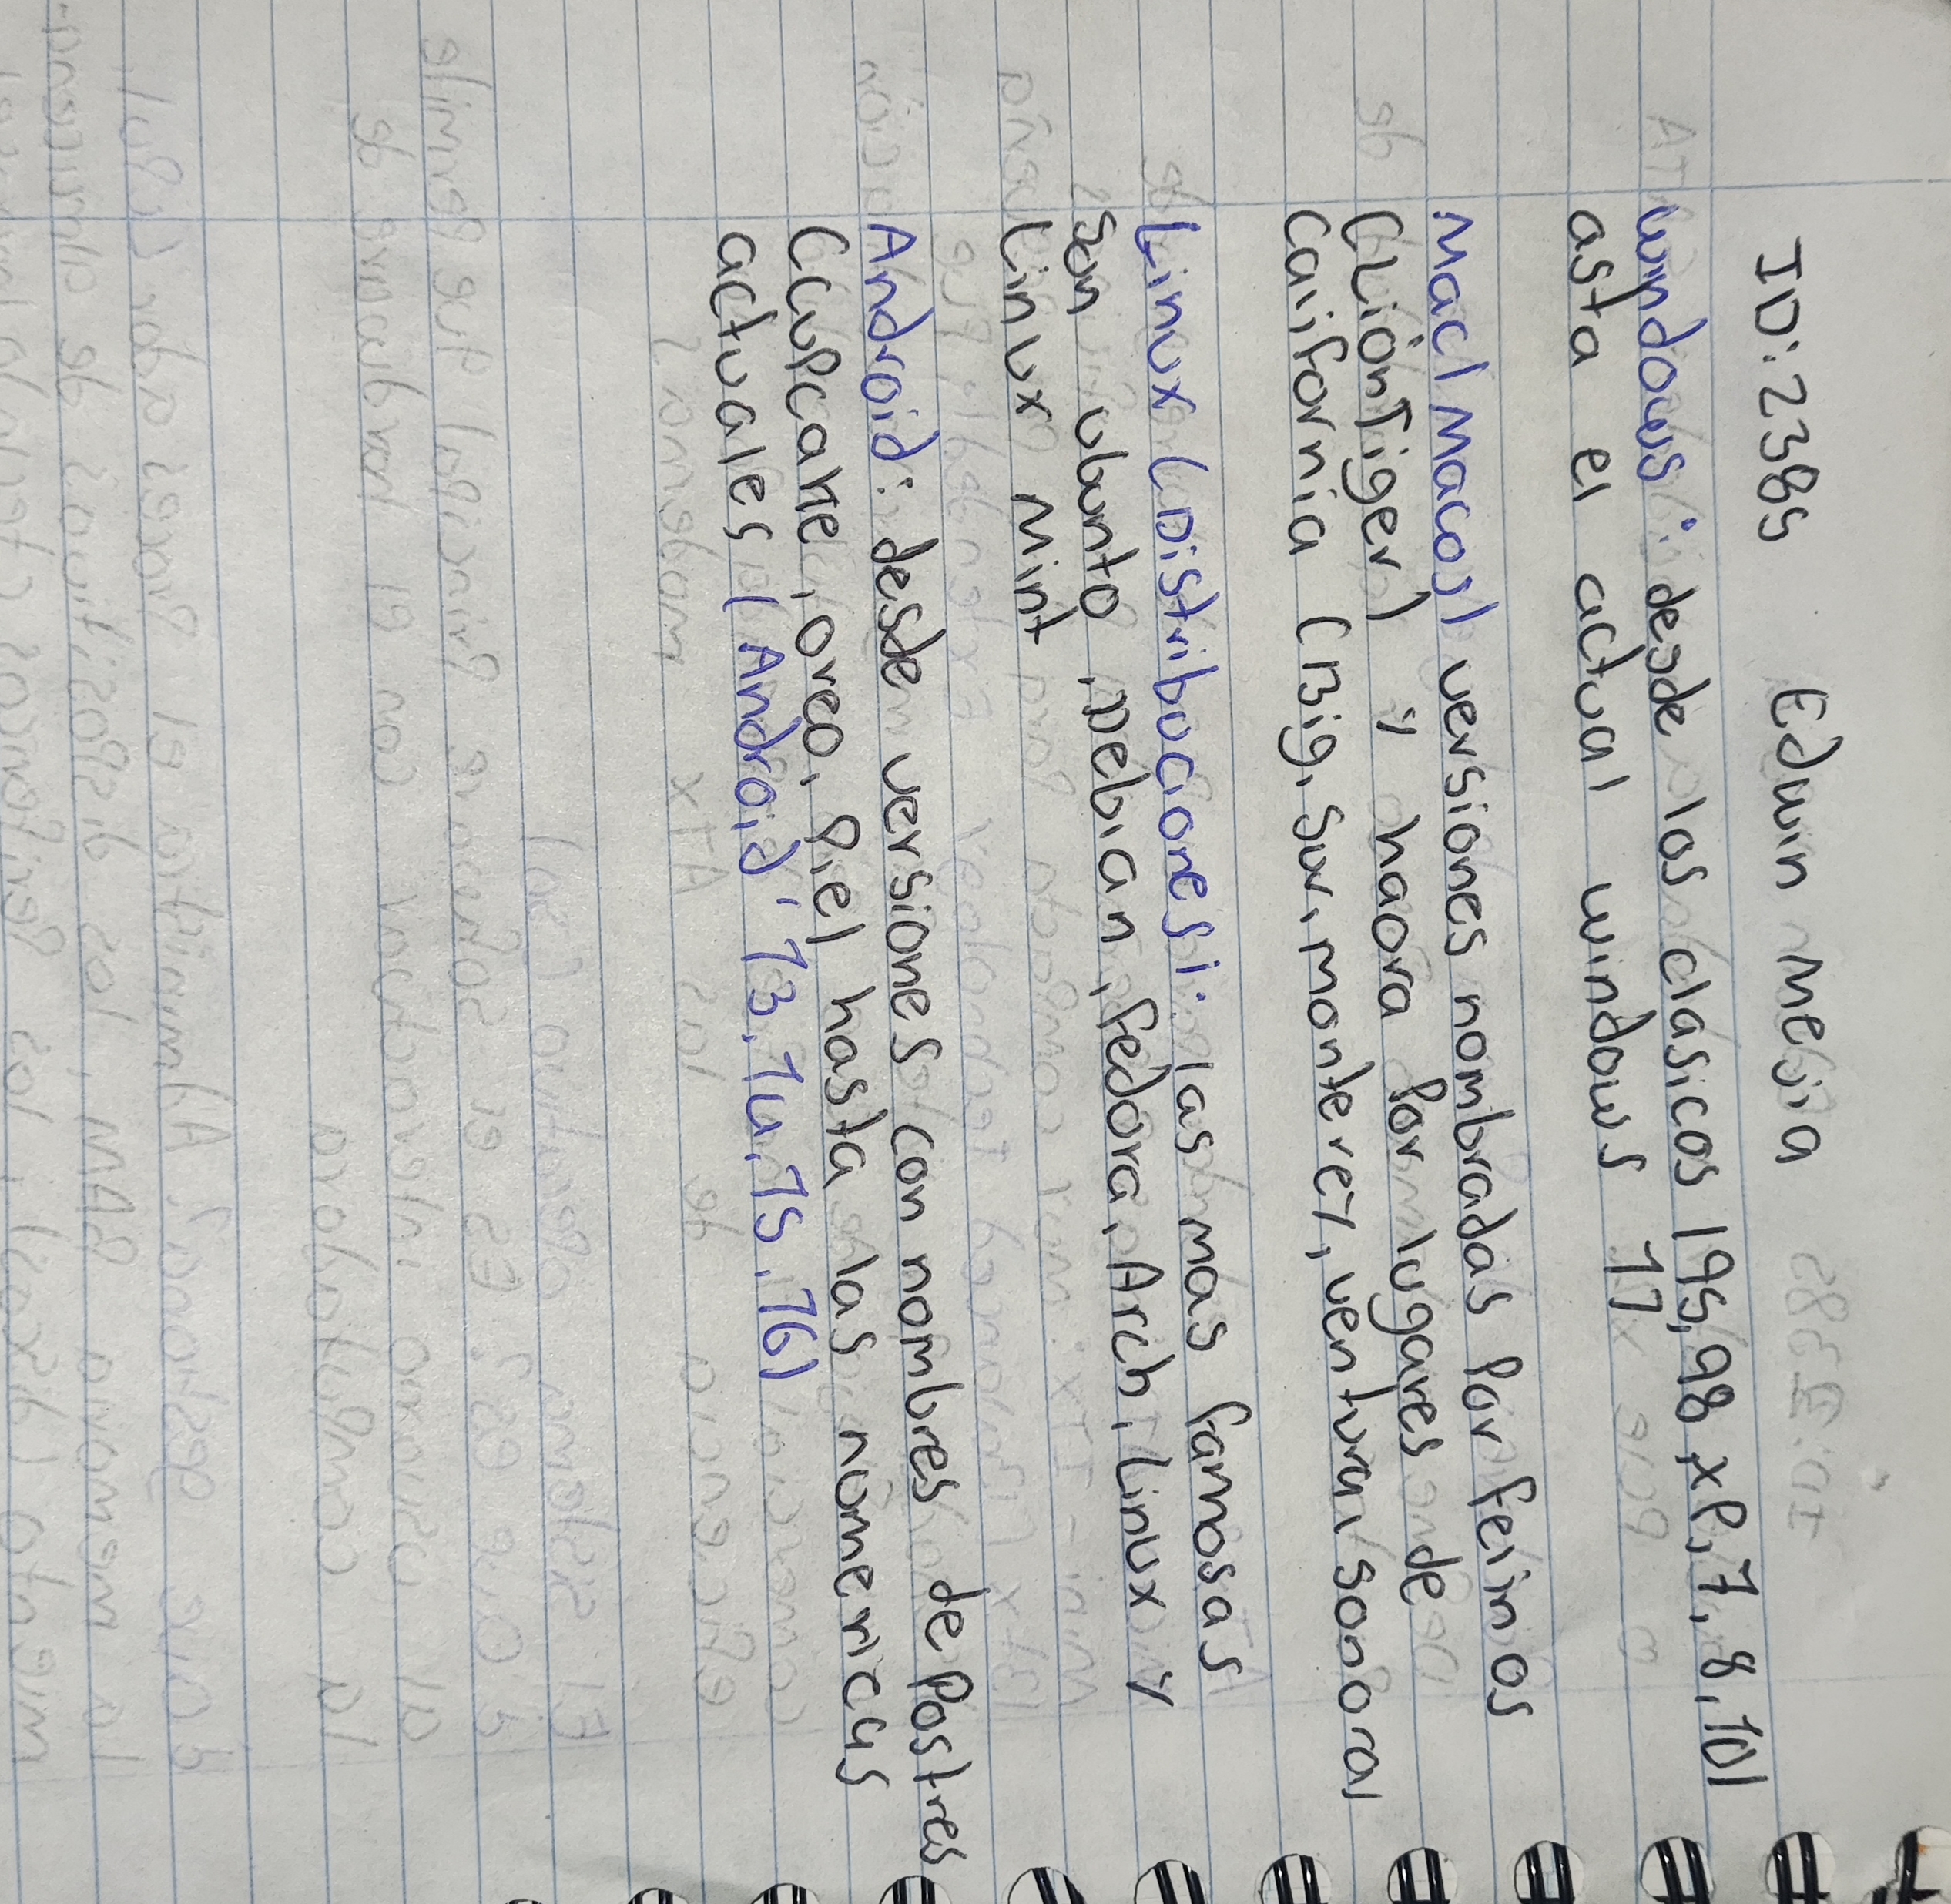 ID:2385 Edwin Mejia
windows: desde los clasicos (95,98 xP,7,8,10)
asta el actual windows 11
Mac(Macos) versiones nombradas Por feinos
(Lion,Tiger) y haora Por lugares de
California (Big,Sur,monterey,ventura,sonora)
Linux (Distribuciones): las mas famosas
son ubunto,Debian,Fedora,Arch,Linux y
Linux Mint
Android: desde versiones con nombres de Postres
(CupCake,oreo,Piel hasta las numericas
actuales (Android, 13,14,15,16)